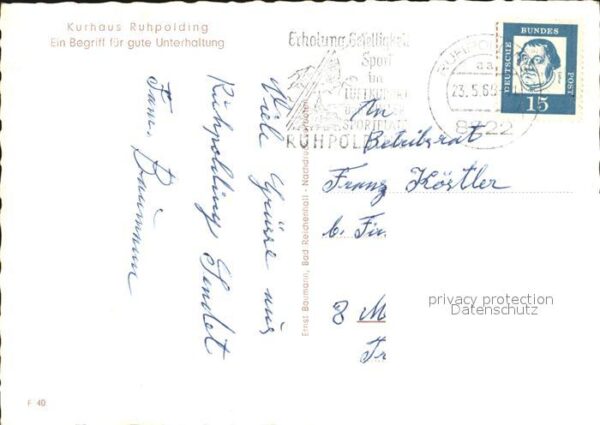 Kurhaus Ruhpolding
Ein Begriff für gute Unterhaltung
Viele Grüsse aus
Ruhpolding Sendet
Fam. Baumann
Ernst Baumann, Bad Reichenhall - Nachdruck verboten
Erholung, Geselligkeit
Sport
im
LUFTKURORT
SPORTPLATZ
RUHPOLDING
RUHPOLDING
aa
23.5.66
8222
DEUTSCHE
BUNDES
POST
15
An
Betriebsrat
Franz Köstler
b. Fir
8 M
Tr
privacy protection
Datenschutz
F 40